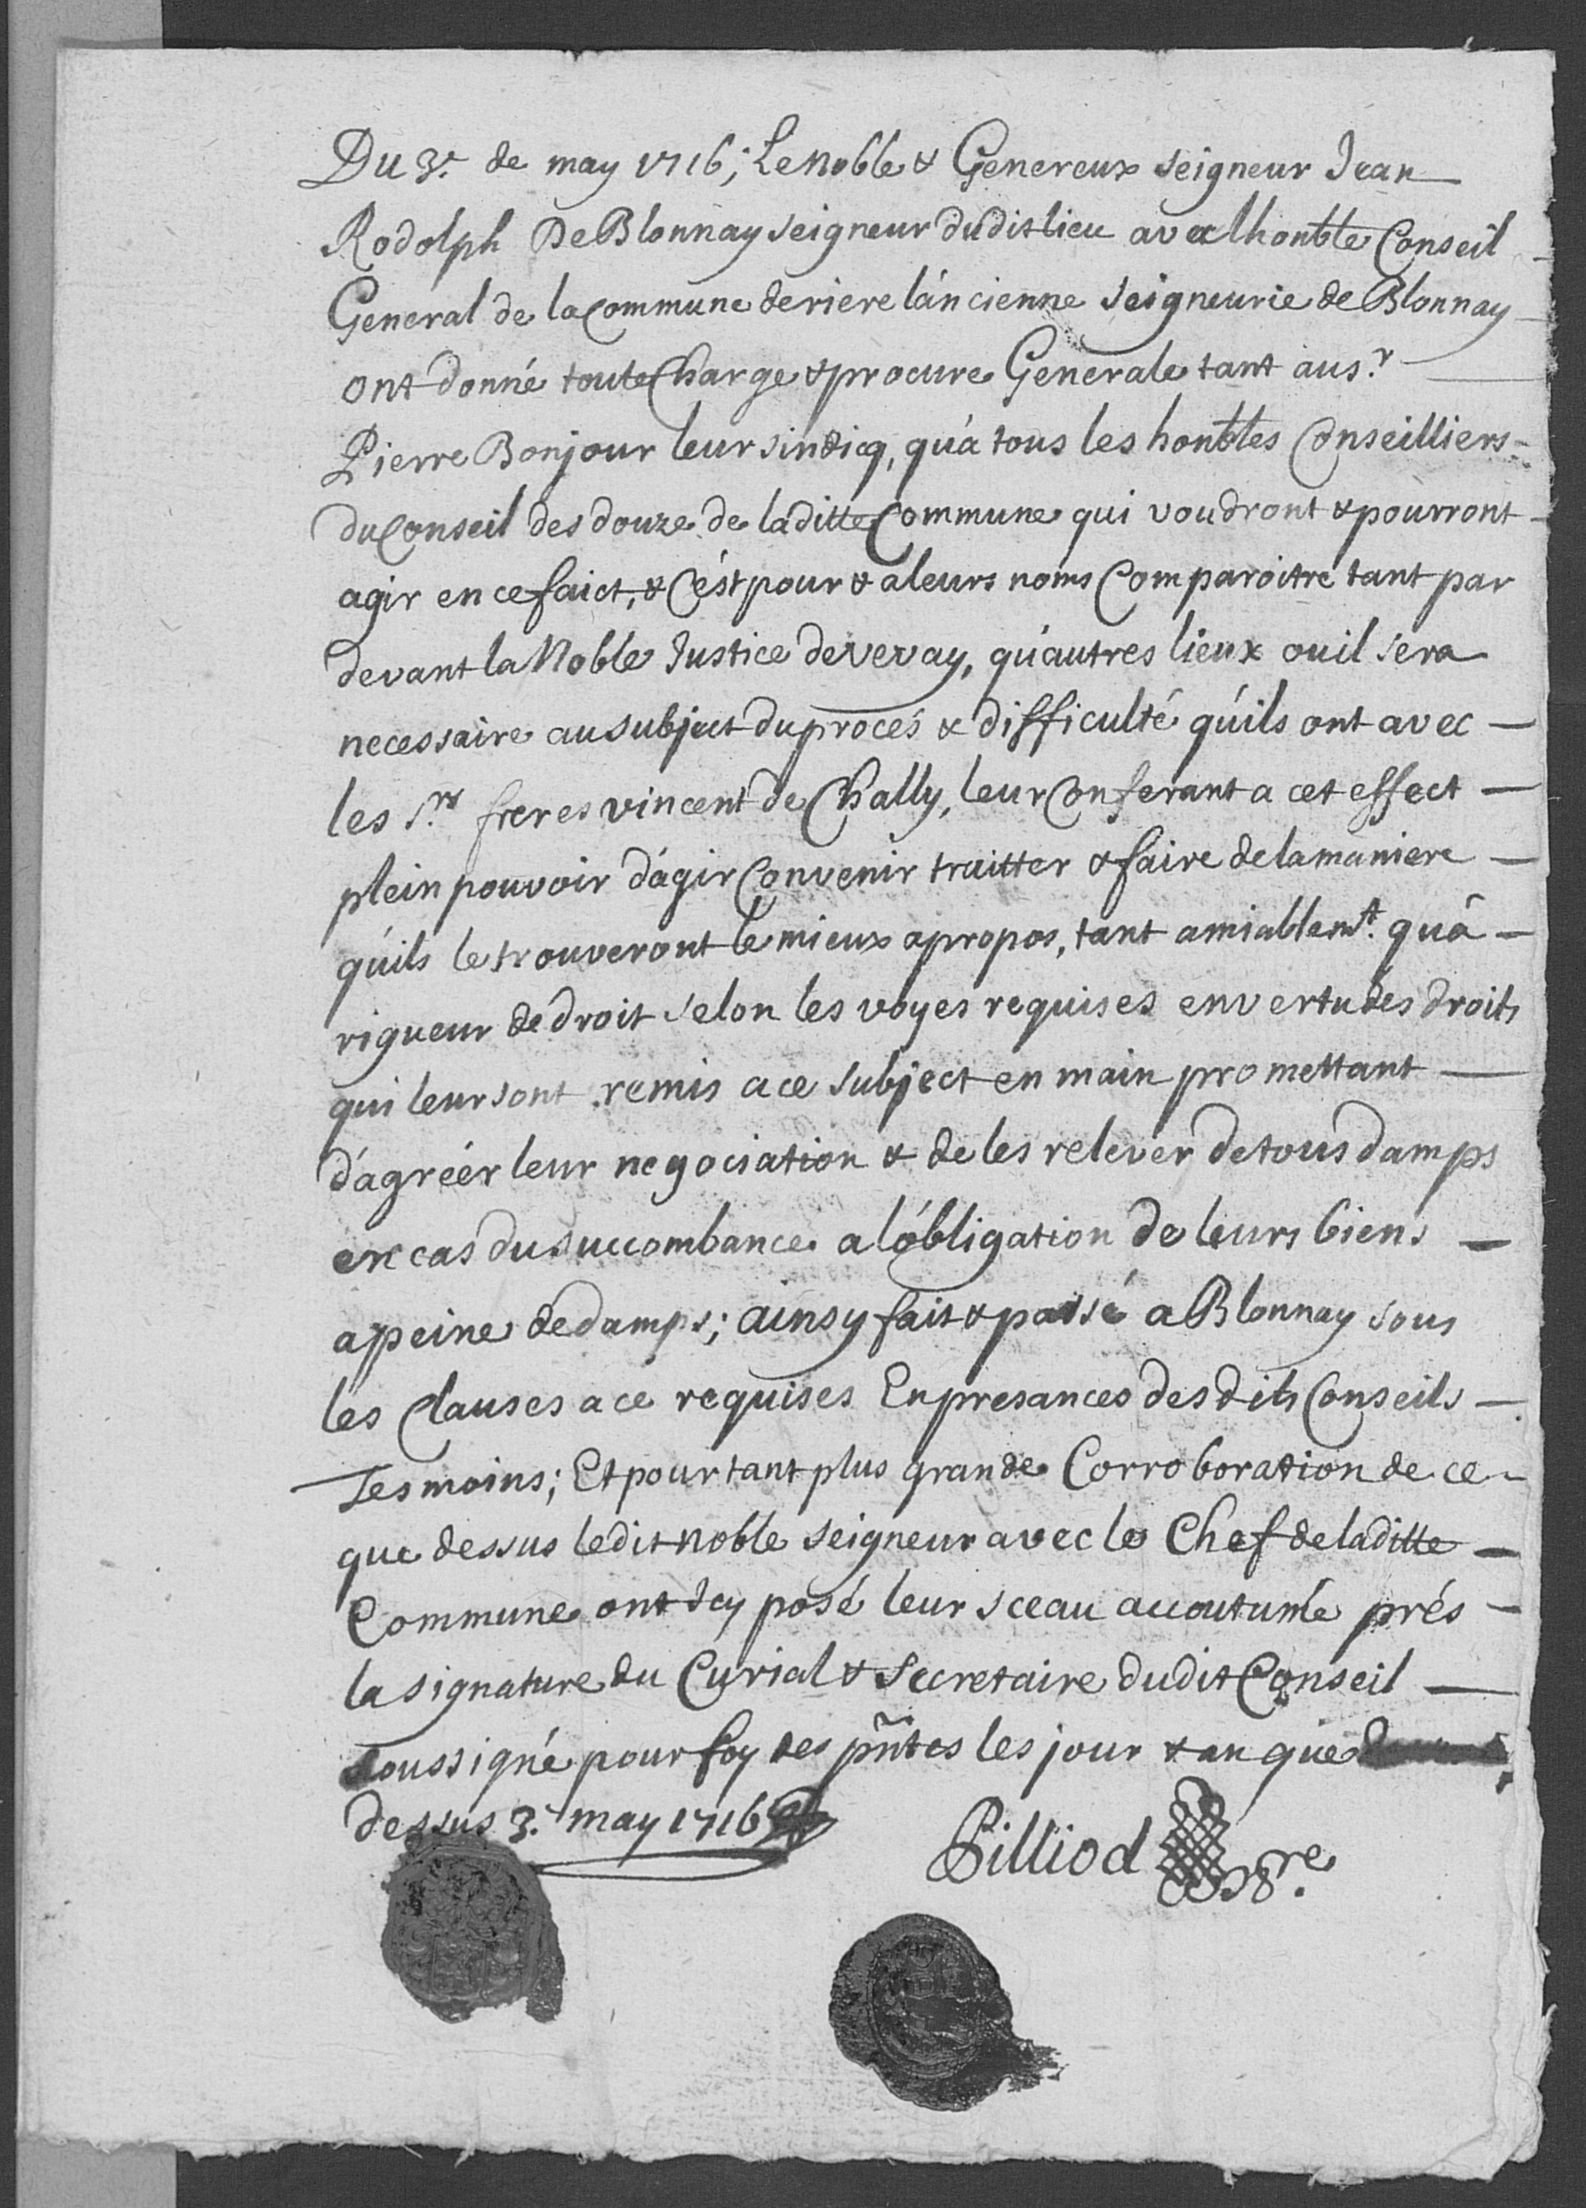 Du 3.e de may 1716; Le Noble & Genereux seigneur Jean
Rodolph De Blonnay seigneur dudit lieu avec lhonble Conseil
General de la Commune deriere láncienne seigneurie de Blonnay
ont donné toute Charge & procure Generale tant au s.r
Pierre Bonjour leur sindicq, quá tous les honbles Conseilliers
du Conseil des douze de laditte Commune qui voudront & pourront
agir en ce faict, & Cést pour & a leurs noms Comparoitre tant par
devant la Noble Justice de Vevay, quáutres lieux ou il sera
necessaire au subject du procés & difficulté quíls ont avec
les S.rs freres vincent de Chally, leur Conferant a cet effect
plein pouvoir dágir Convenir traitter & faire de la maniere
quíls le trouveront le mieux apropos, tant amiablem.t quâ
rigueur de droit selon les voyes requises en vertu dés droits
qui leur sont remis a ce subject en main promettant
dágréér leur negociation & de les relever de tous damps
en cas du succombance a lóbligation de leurs biens
a peine de damps; ainsy fait & passé a Blonnay sous
les Clauses a ce requises En presances desdits Conseils
Tesmoins; Et pour tant plus grande Corroboration de ce
que dessus ledit noble seigneur avec le Chef de laditte
Commune ont Icy posé leur sceau accoutumé prés
la signature du Curial & Secretaire dudit Conseil
soussigné pour foy des pñtes les jour & an que
dessus 3.e may 1716
Pilliod